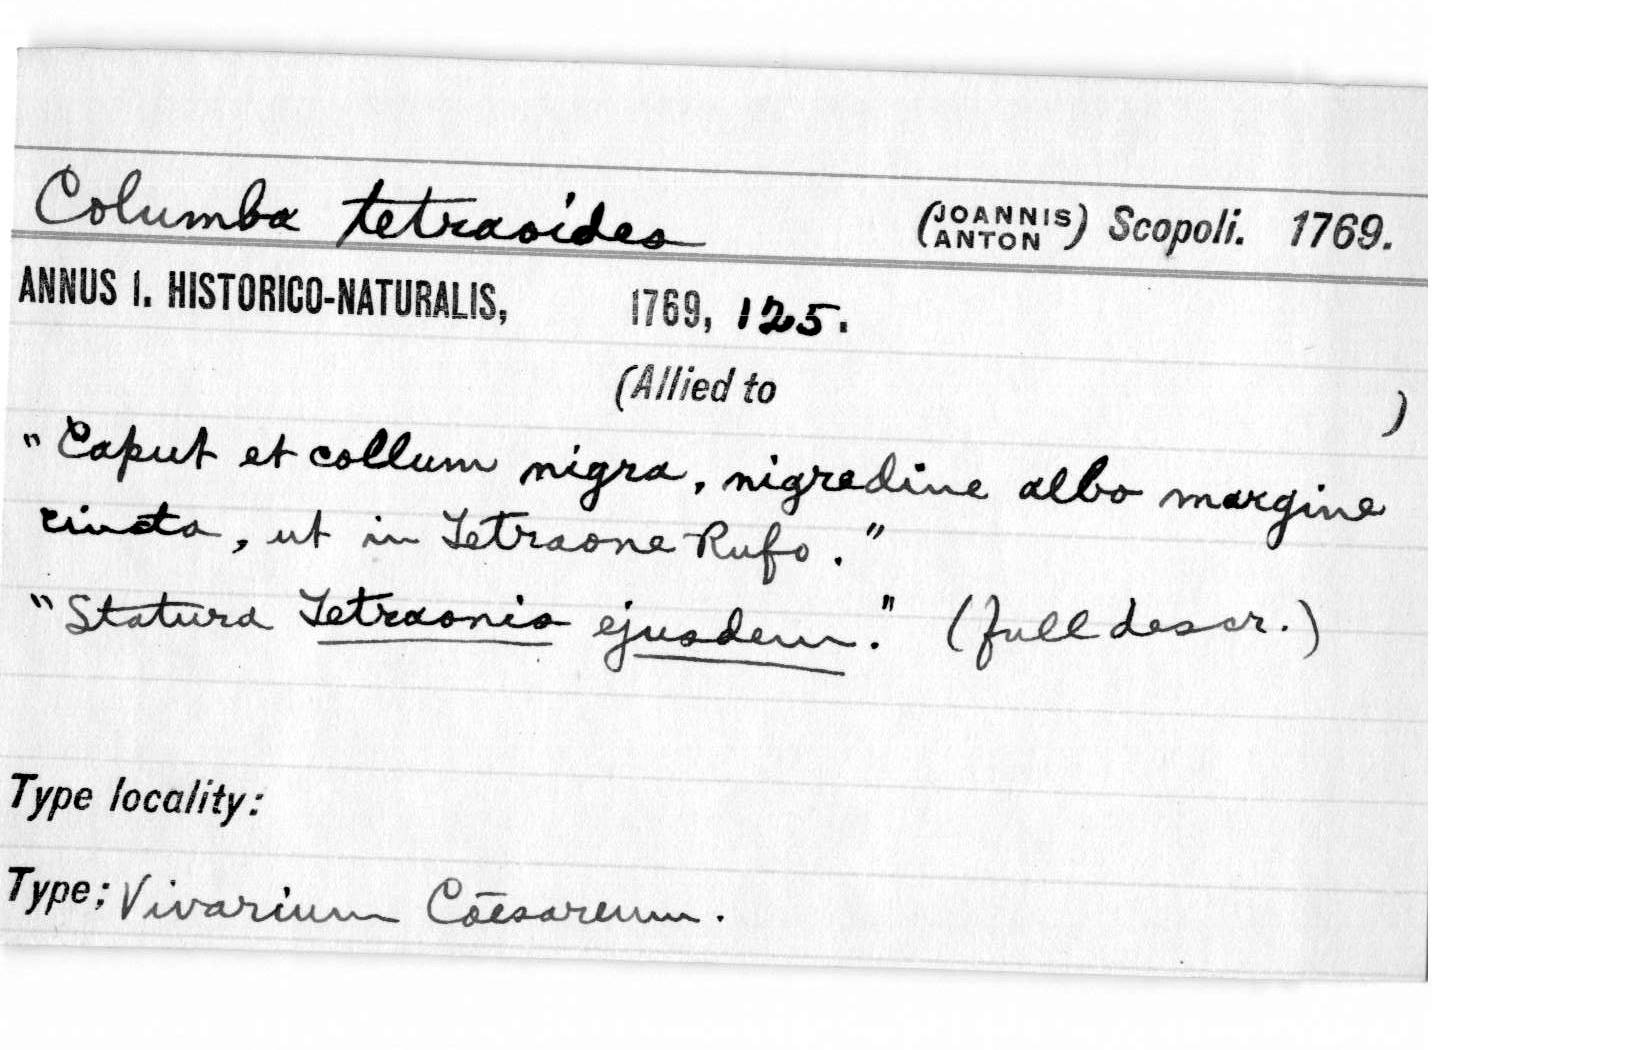 Columba tetraoides (JOANNIS ANTON) Scopoli. 1769.
ANNUS I. HISTORICO-NATURALIS, 1769, 125.
(Allied to )
"Caput et collum nigra, nigredine albo margine
cincta, ut in Tetraone Rufo."
"Statura Tetraonis ejusdem." (full descr.)
Type locality:
Type: Vivarium Cāesareum.